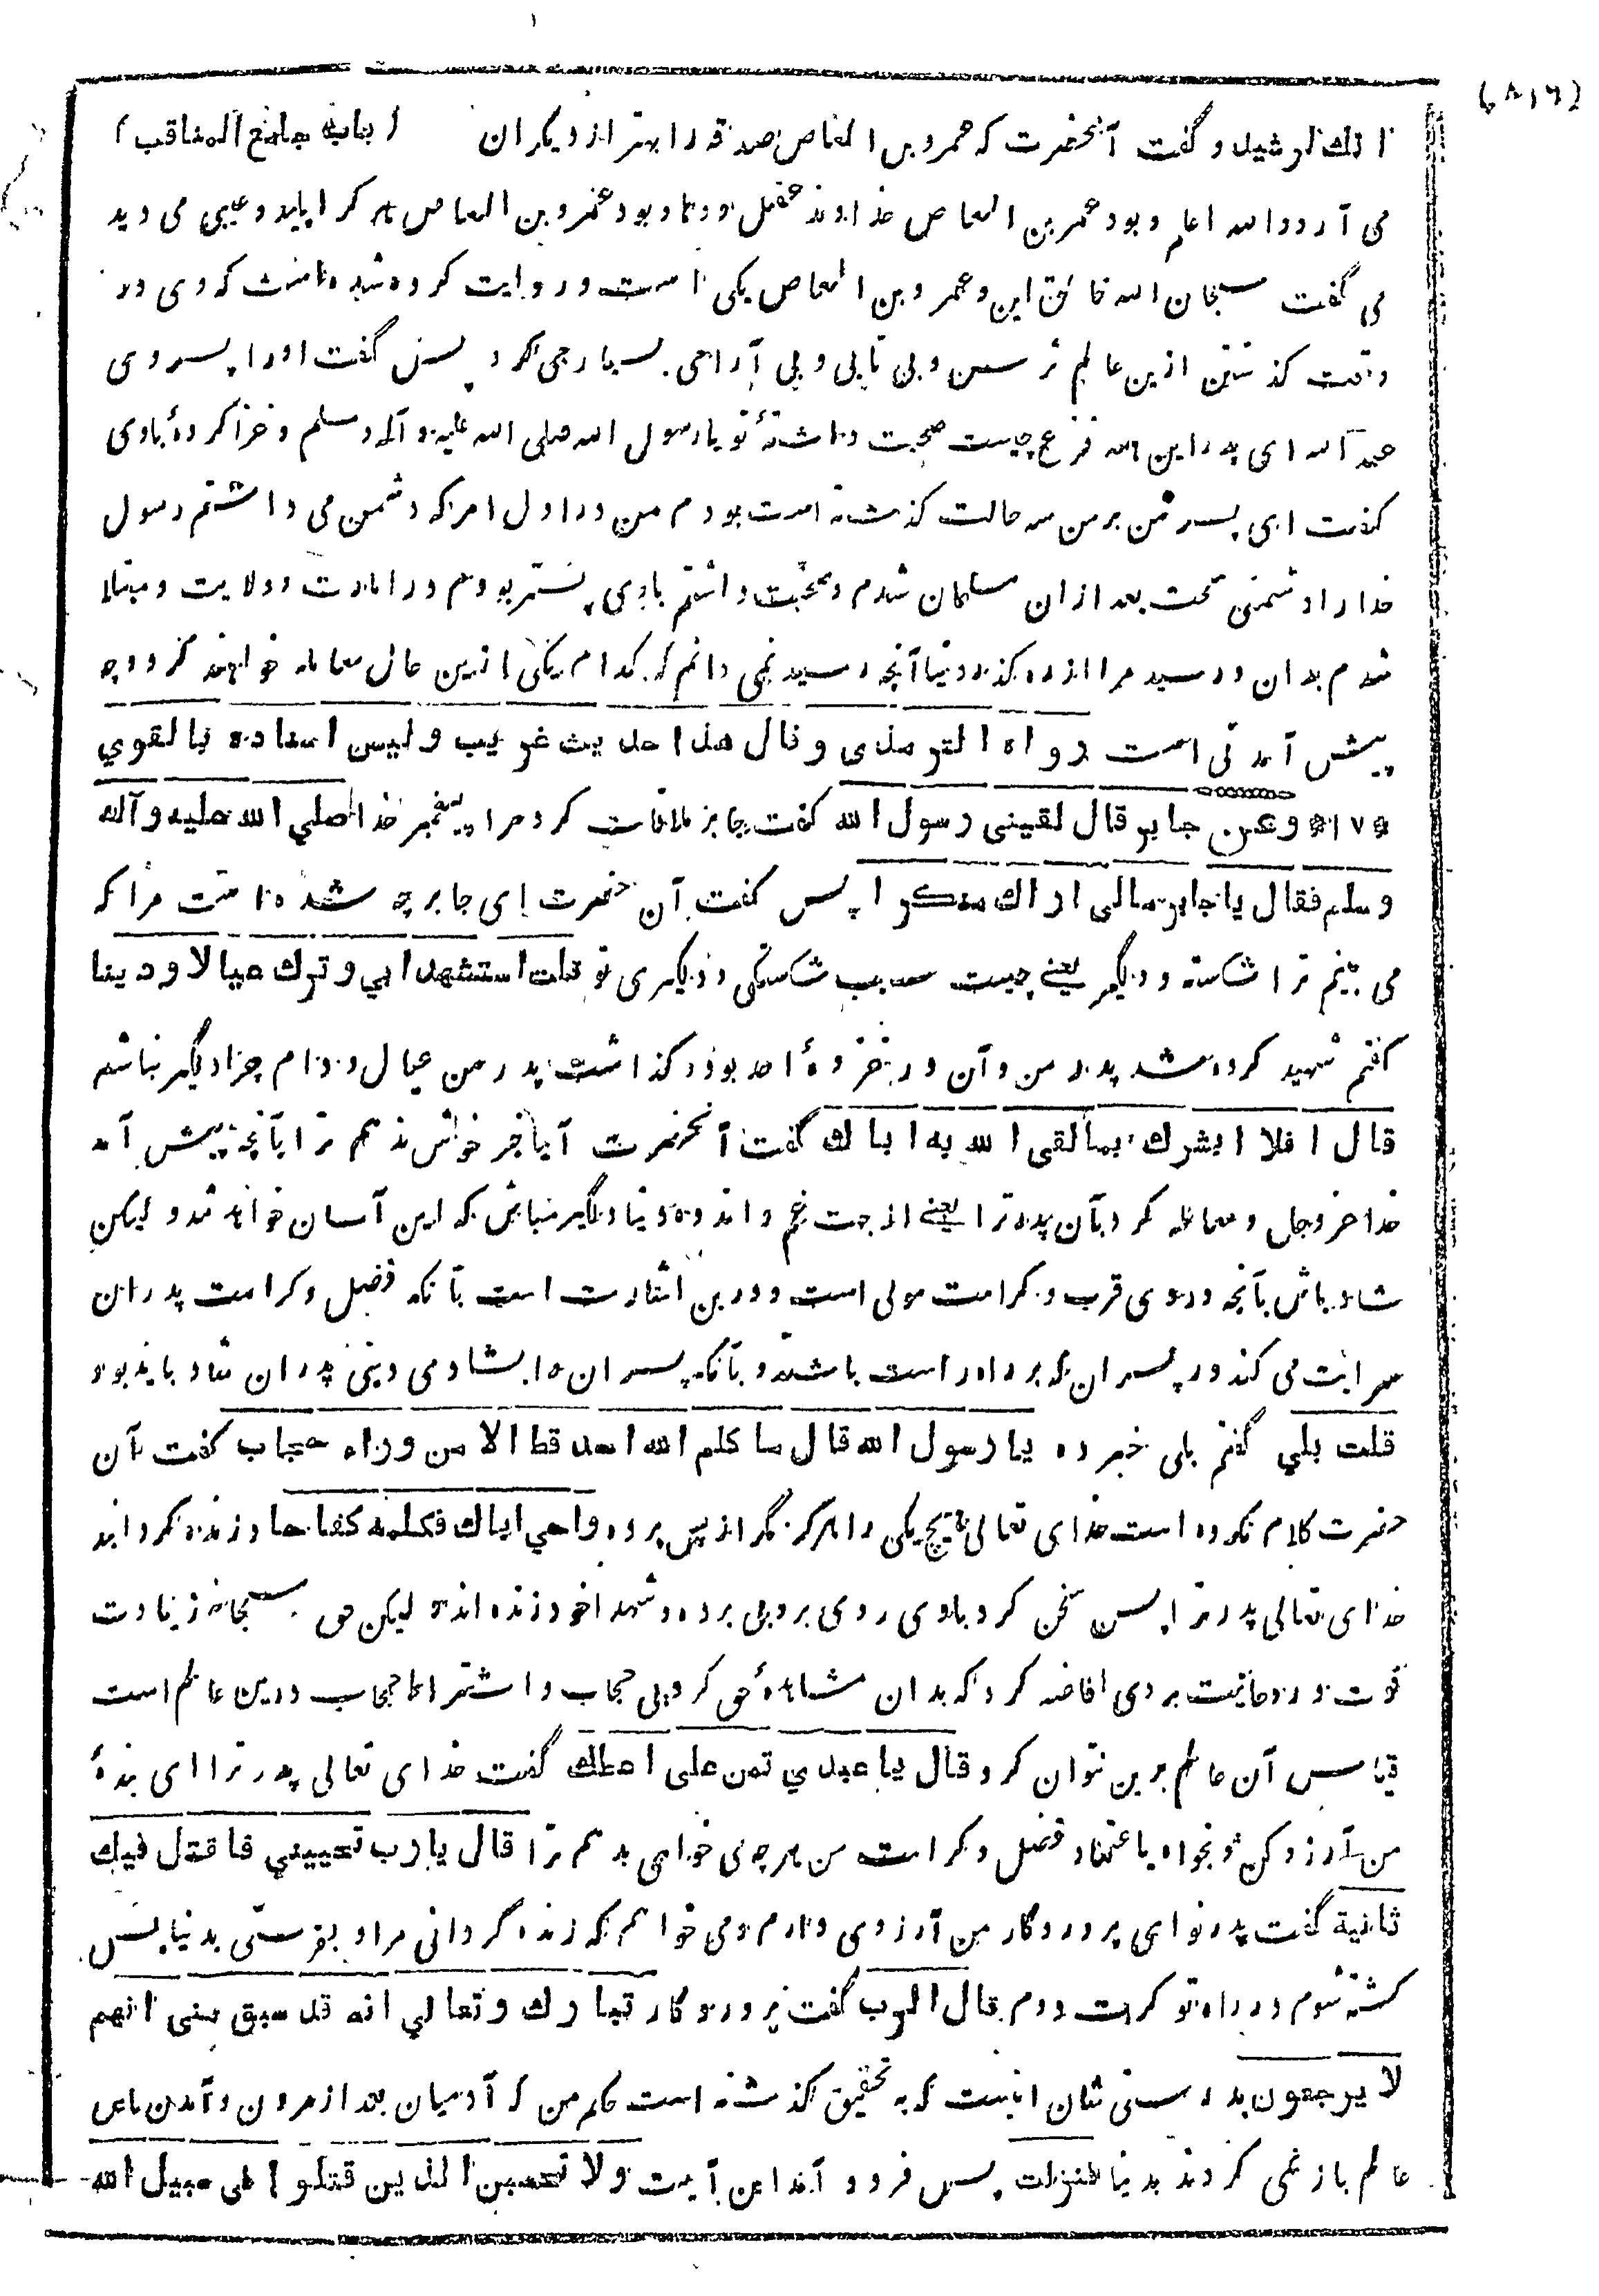 (۸۱۶)
(باب جامع المناقب)
انك لرشيد و گفت آنحضرت که عمرو بن العاص صدقه را بهتر از دیگران
می آرد والله اعلم و بود عمرو بن العاص خداوند عقل و دها و بود عمرو بن العاص هر کرا پلید و عیبی می دید
می گفت سبحان الله خالق این و عمرو بن العاص یکی است و روایت کرده شده است که وی در
وقت گذشتن ازین عالم ترس و بی تابی و بی آرامی بسیار می کرد پس گفت اورا پسر وی
عبد الله ای پدر این همه فزع چیست صحبت داشتهٔ تو با رسول الله صلی الله علیه و آله وسلم و غزا کردهٔ باوی
گفت ای پسر من بر من سه حالت گذشته است بودم من در اول امر که دشمن می داشتم رسول
خدا را دشمنی سخت بعد ازان مسلمان شدم و صحبت داشتم باوی پستر بودم در امارت و ولایت و مبتلا
شدم بدان و رسید مرا از رهگذر دنیا آنچه رسید نمی دانم که کدام یکی ازین حال معامله خواهند کرد و چه
پیش آمدنی است رواه الترمذی وقال هذا حديث غريب وليس اسناده بالقوي
*۱۷* وعن جابر قال لقيني رسول الله گفت جابر ملاقات کرد مرا پیغمبر خدا صلي الله عليه وآله
وسلم فقال يا جابر مالي اراك منكسرا پس گفت آن حضرت ای جابر چه شده است مرا که
می بینم ترا شکسته و دلگیر یعنی چیست سبب شکستگی و دلگیری تو قلت استشهد ابي وترك عيالا ودينا
گفتم شهید کرده شد پدر من و آن در غزوهٔ احد بود و گذاشت پدر من عیال و وام چرا دلگیر نباشم
قال افلا ابشرك بما لقي الله به اباك گفت آنحضرت آیا خبر خوش ندهم ترا بآنچه پیش آمد
خدا عز وجل و معامله کرد بآن پدر ترا یعنی از جهت غم و اندوه دنیا دلگیر مباش که این آسان خواهد شد و لیکن
شاد باش بآنچه در وی قرب و کرامت مولی است و درین اشارت است بآنکه فضل و کرامت پدران
سرایت می کند در پسران که بر راه راست باشند و بآنکه پسران را بشادمی دینی پدران شاد باید بود
قلت بلي گفتم بلی خبر ده يا رسول الله قال ما كلم الله احد قط الا من وراء حجاب گفت آن
حضرت کلام نکرده است خدای تعالی هیچ یکی را هرگز مگر از پس پرده واحي اباك فكلمه كفاحا و زنده گردانید
خدای تعالی پدر ترا پس سخن کرد باوی روی بروی بی پرده و شهدا خود زنده اند لیکن حق سبحانه زیادت
قوت و روحانیت بروی افاضه کرد که بدان مشاهدهٔ حق کرد بی حجاب و اشتراط حجاب درین عالم است
قیاس آن عالم برین نتوان کرد قال يا عبدي تمن علي اعطك گفت خدای تعالی پدر ترا ای بندهٔ
من آرزو کن و بخواه باعتماد فضل و کرامت من هرچه می خواهی بدهم ترا قال يارب تحييني فاقتل فيك
ثانية گفت پدر تو ای پروردگار من آرزوی دارم و می خواهم که زنده گردانی مرا و بفرستی بدنیا پس
کشته شوم در راه تو کرت دوم قال الرب گفت پروردگار تبارك وتعالي انه قد سبق مني انهم
لا يرجعون بدرستی شان اینست که به تحقیق گذشته است حکم من که آدمیان بعد از مردن و آمدن باین
عالم باز نمی گردند بدنیا فنزلت پس فرود آمد این آیت ولا تحسبن الذين قتلوا في سبيل الله